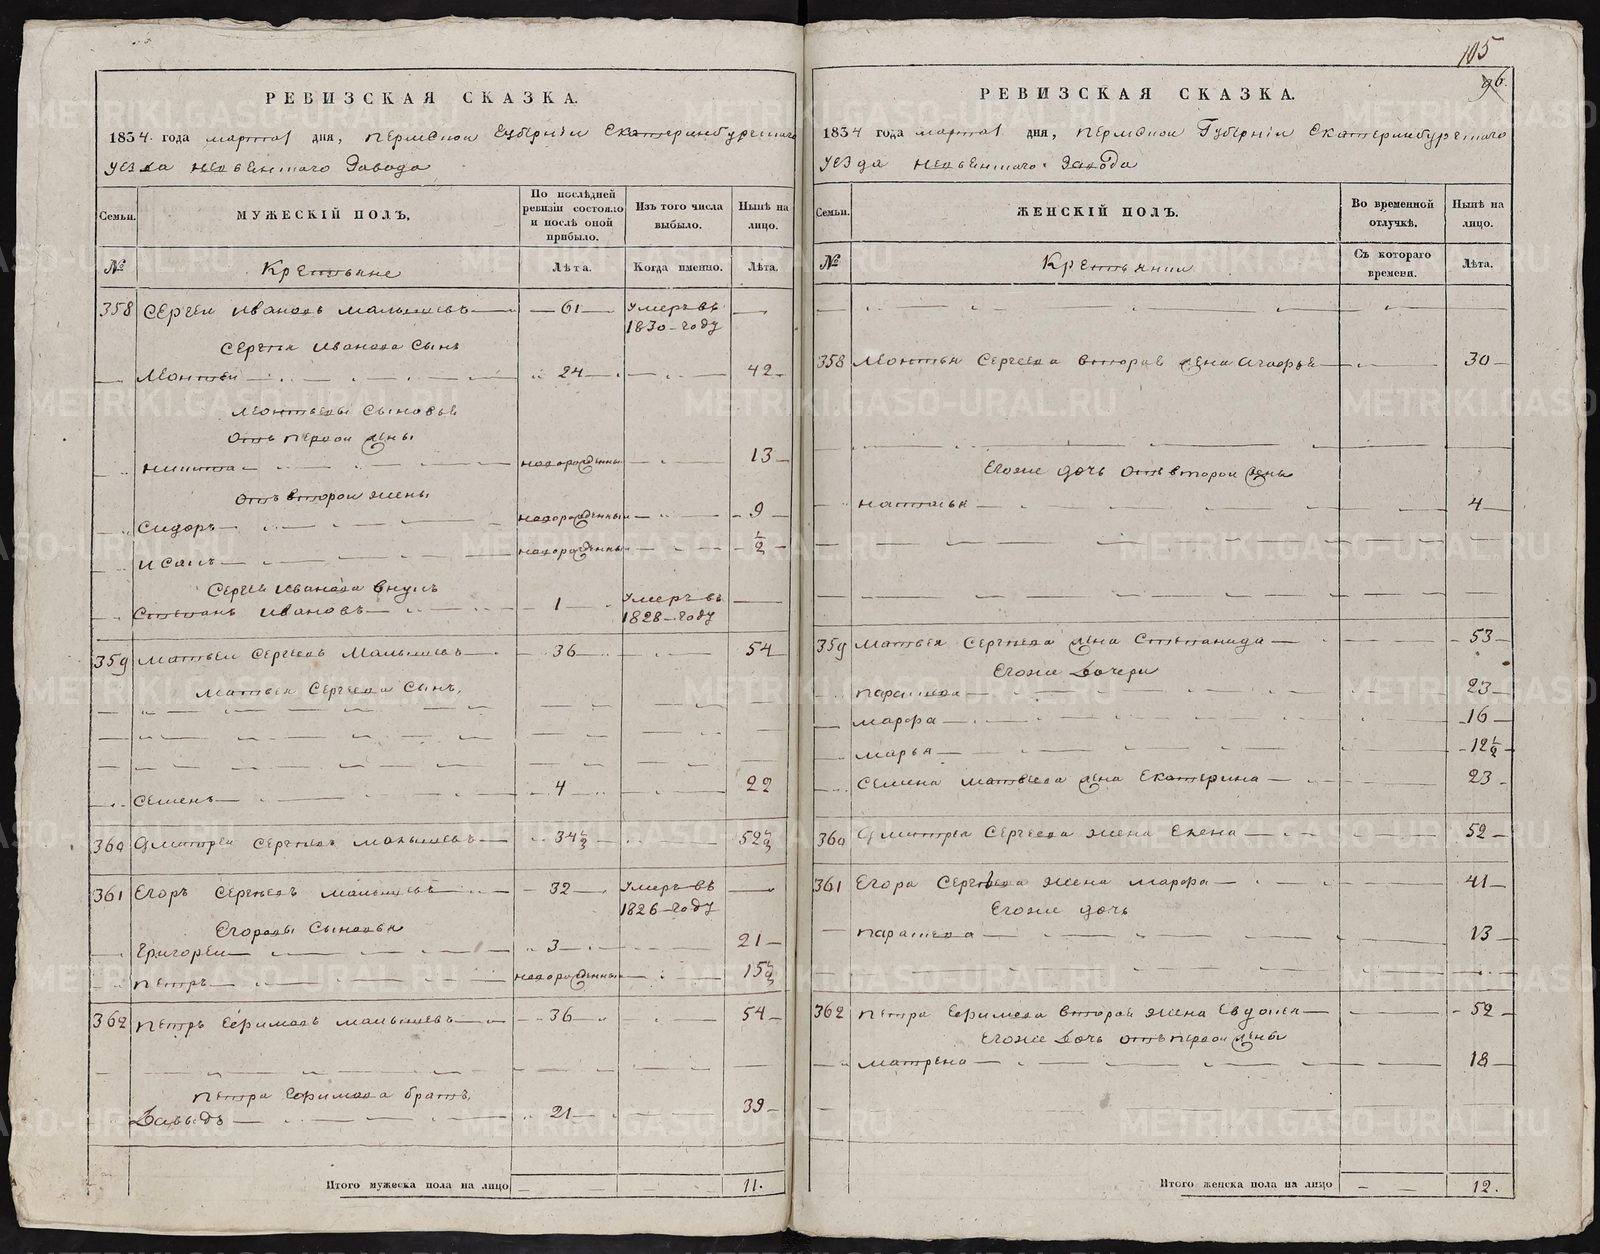 РЕВИЗСКАЯ СКАЗКА.
1834. года марта 1 дня, Пермской Губернии Екатеринбургскаго
уезда Невьянскаго Завода
Семьи. МУЖЕСКІЙ ПОЛЪ, По послѣдней ревизіи состояло и послѣ оной прибыло. Изъ того числа выбыло. Нынѣ на лицо.
№ Крестьяне Лѣта. Когда именно. Лѣта.
358 Сергеи Ивановъ Малышевъ 61 Умеръ въ 1830 году
Сергея Иванова Сынъ
Леонтеи 24 42
Леонтьевы Сыновья
Отъ первои жены
Никита новорожденны 13
Отъ второи жены
Сидоръ новорожденны 9
Исакъ новорожденны ½
Сергея Иванова внукъ
Степанъ Ивановъ 1 Умеръ въ 1828 году
359 Матвеи Сергеевъ Малышевъ 36 54
Матвея Сергеева Сынъ,
Семенъ 4 22
360 Дмитреи Сергеевъ Малышевъ 34½ 52½
361 Егоръ Сергеевъ Малышевъ 32 Умеръ въ 1826 году
Егоровы Сыновья
Григореи 3 21
Петръ новорожденны 15½
362 Петръ Ефимовъ Малышевъ 36 54
Петра Ефимова братъ,
Давыдъ 21 39
Итого мужеска пола на лицо 11.
105
96.
РЕВИЗСКАЯ СКАЗКА.
1834 года марта 1 дня, Пермской Губернiи Екатеринбургскаго
уезда Невьянскаго Завода
Семьи. ЖЕНСКІЙ ПОЛЪ. Во временной отлучкѣ. Нынѣ на лицо.
№ Крестьянки Съ котораго времени. Лѣта.
358 Леонтья Сергеева вторая жена Агафья 30
Егоже дочь отъ второи жены
Наталья 4
359 Матвея Сергеева жена Степанида 53
Егоже Дочери
Парасковa 23
Марфа 16
Марья 12½
Семена Матвеева жена Екатерина 23
360 Дмитрея Сергеева жена Елена 52
361 Егора Сергеева жена Марфа 41
Егоже дочь
Парасковa 13
362 Петра Ефимова вторая жена Евдокея 52
Егоже Дочь отъ первои жены
Матрена 18
Итого женска пола на лицо 12.
METRIKI.GASO-URAL.RU